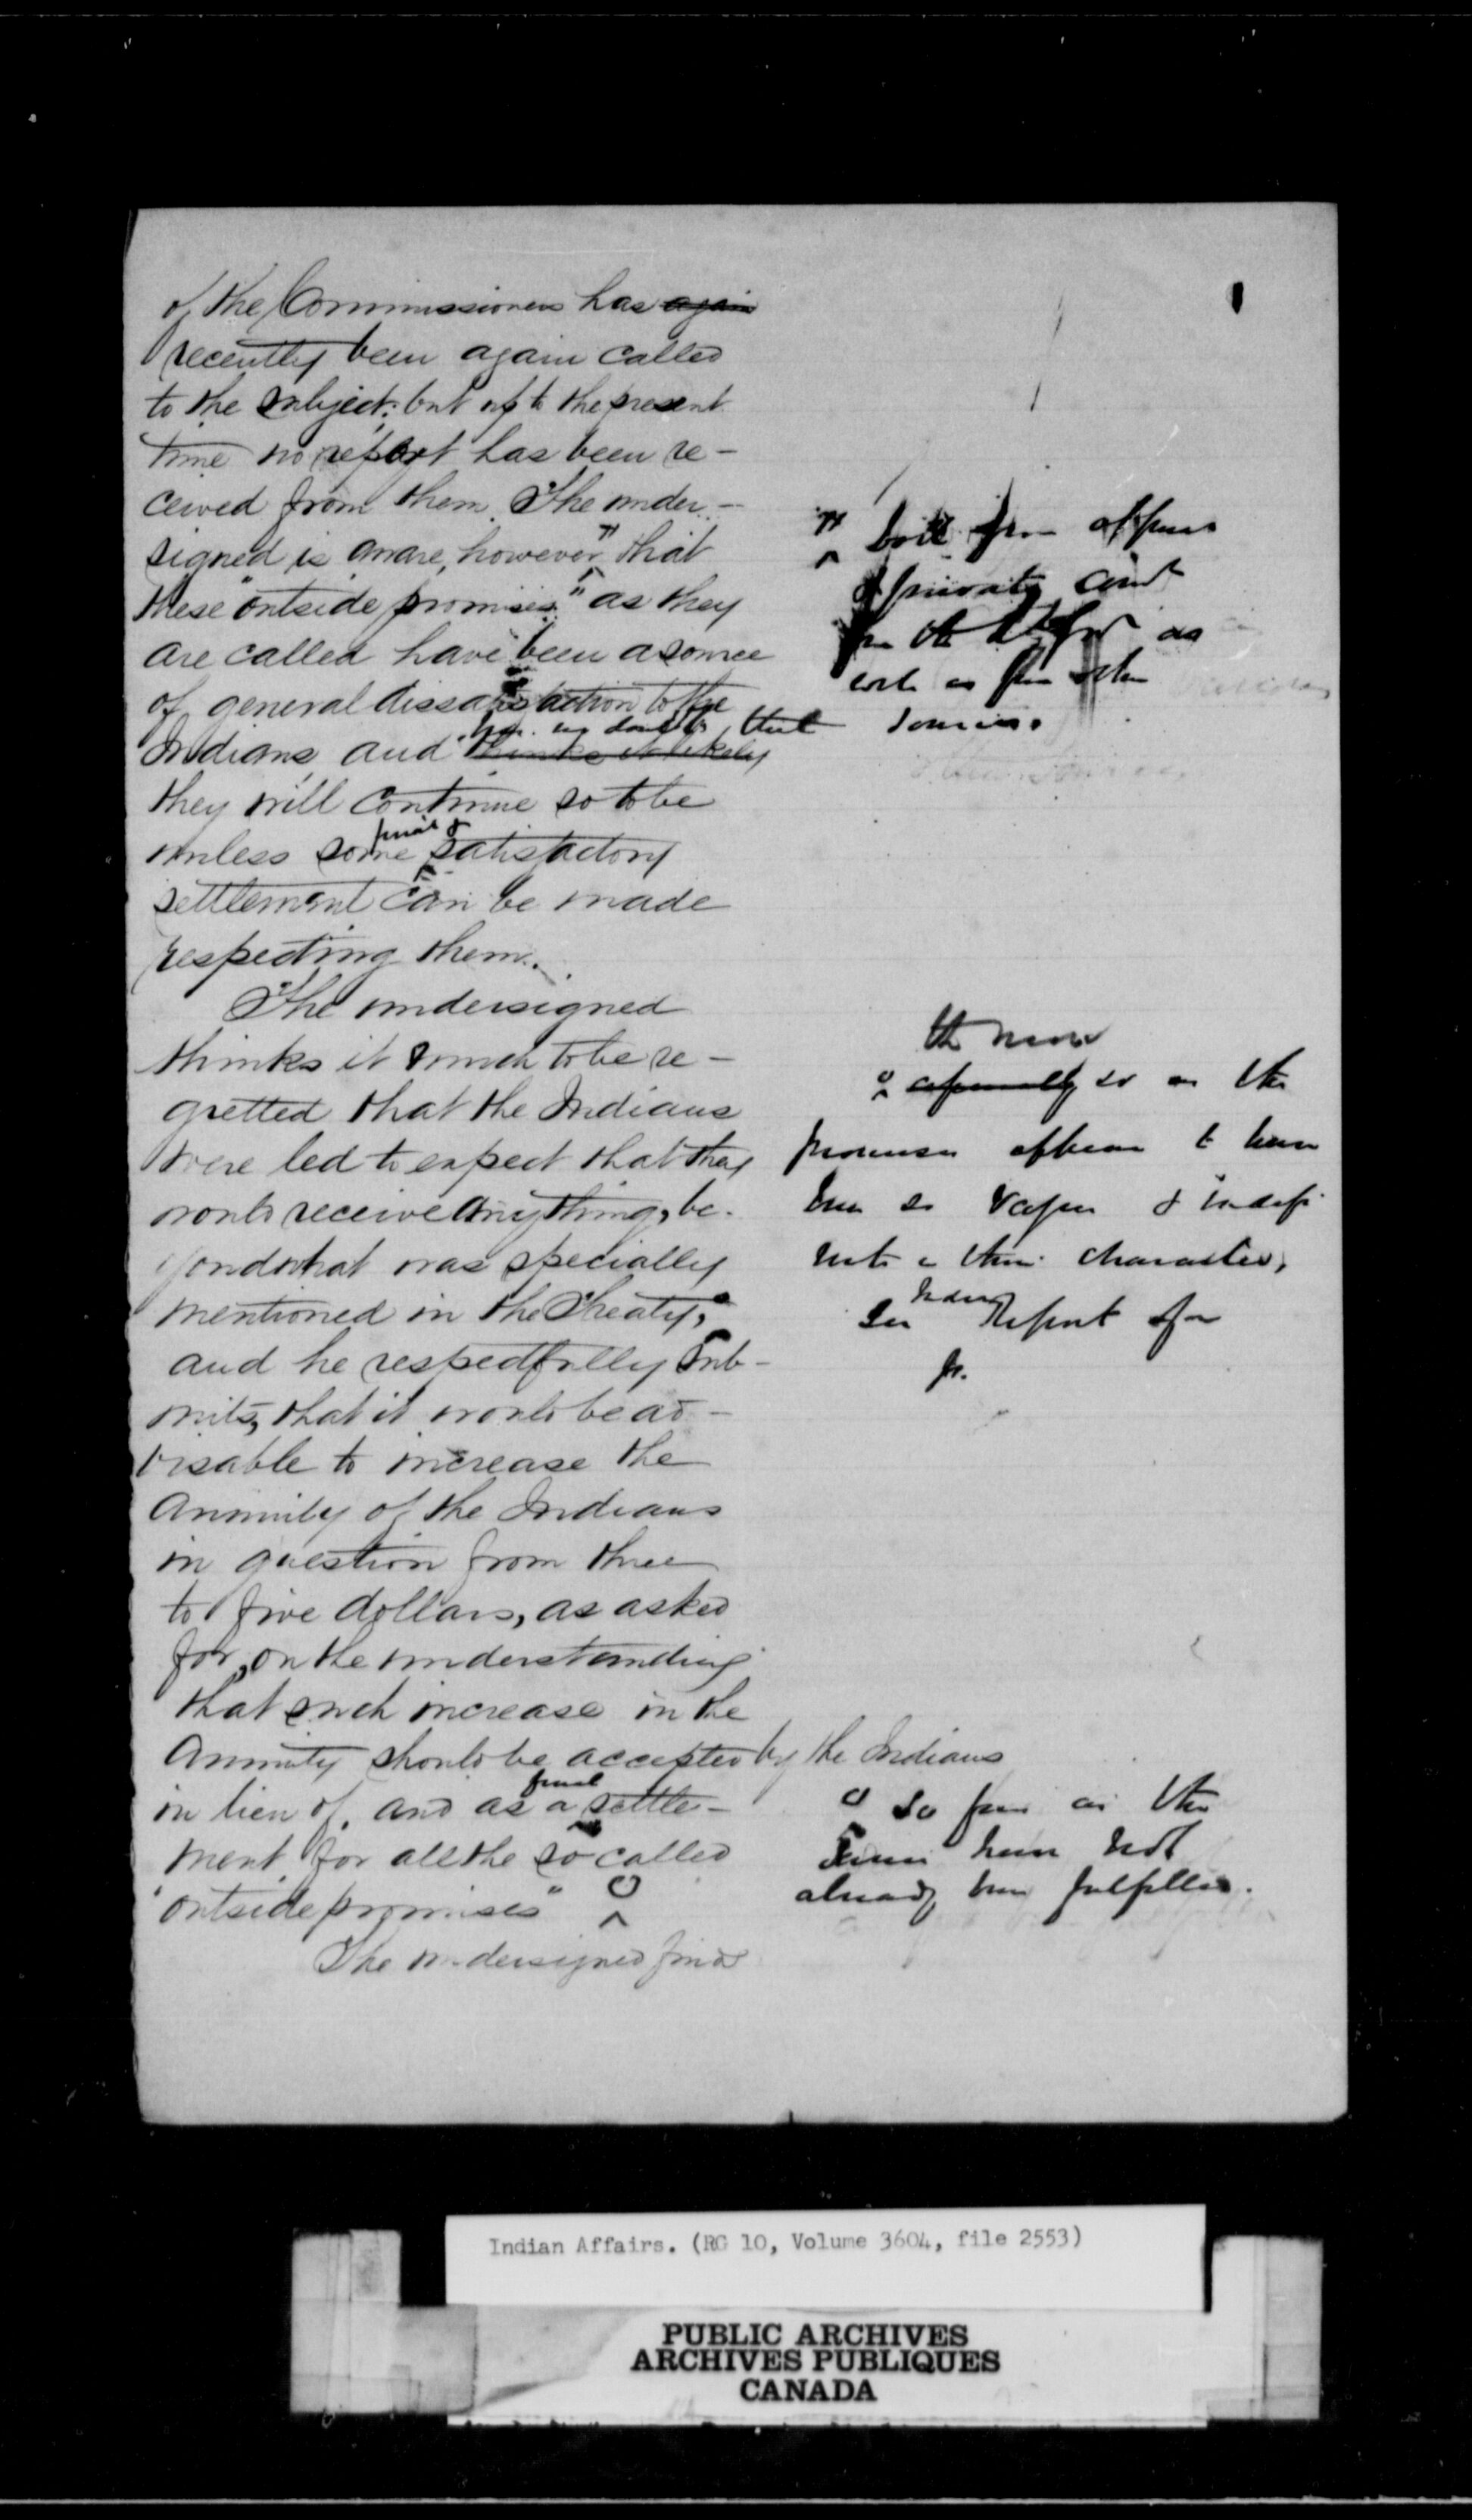 of the Commissioners has again
recently been again called
to the subject; but up to the present
time no report has been re-
ceived from them. The under-
signed is aware, however, that
these "outside promises" as they
are called have been a source
of general dissatisfaction to the
Indians, and has no doubt that
thinks it likely
they will continue so to be
final &
unless some satisfactory
settlement can be made
respecting them.
The undersigned
thinks it much to be re-
gretted that the Indians
were led to expect that they
would receive anything, be-
yond what was specially
mentioned in the Treaty,
and he respectfully sub-
mits, that it would be ad-
visable to increase the
Annuity of the Indians
in question from three
to five dollars, as asked
for, on the understanding
that such increase in the
Annuity should be accepted by the Indians
final
in lieu of, and as a settle-
ment, for all the so called
"outside promises"
The undersigned finds
both from
private
as
well as from other
sources.
the more
so as the
promises appear to have
been so vague & indefi
nite in their character,
See Report for
so far as the
same have not
already been fulfilled.
Indian Affairs. (RG 10, Volume 3604, file 2553)
PUBLIC ARCHIVES
ARCHIVES PUBLIQUES
CANADA